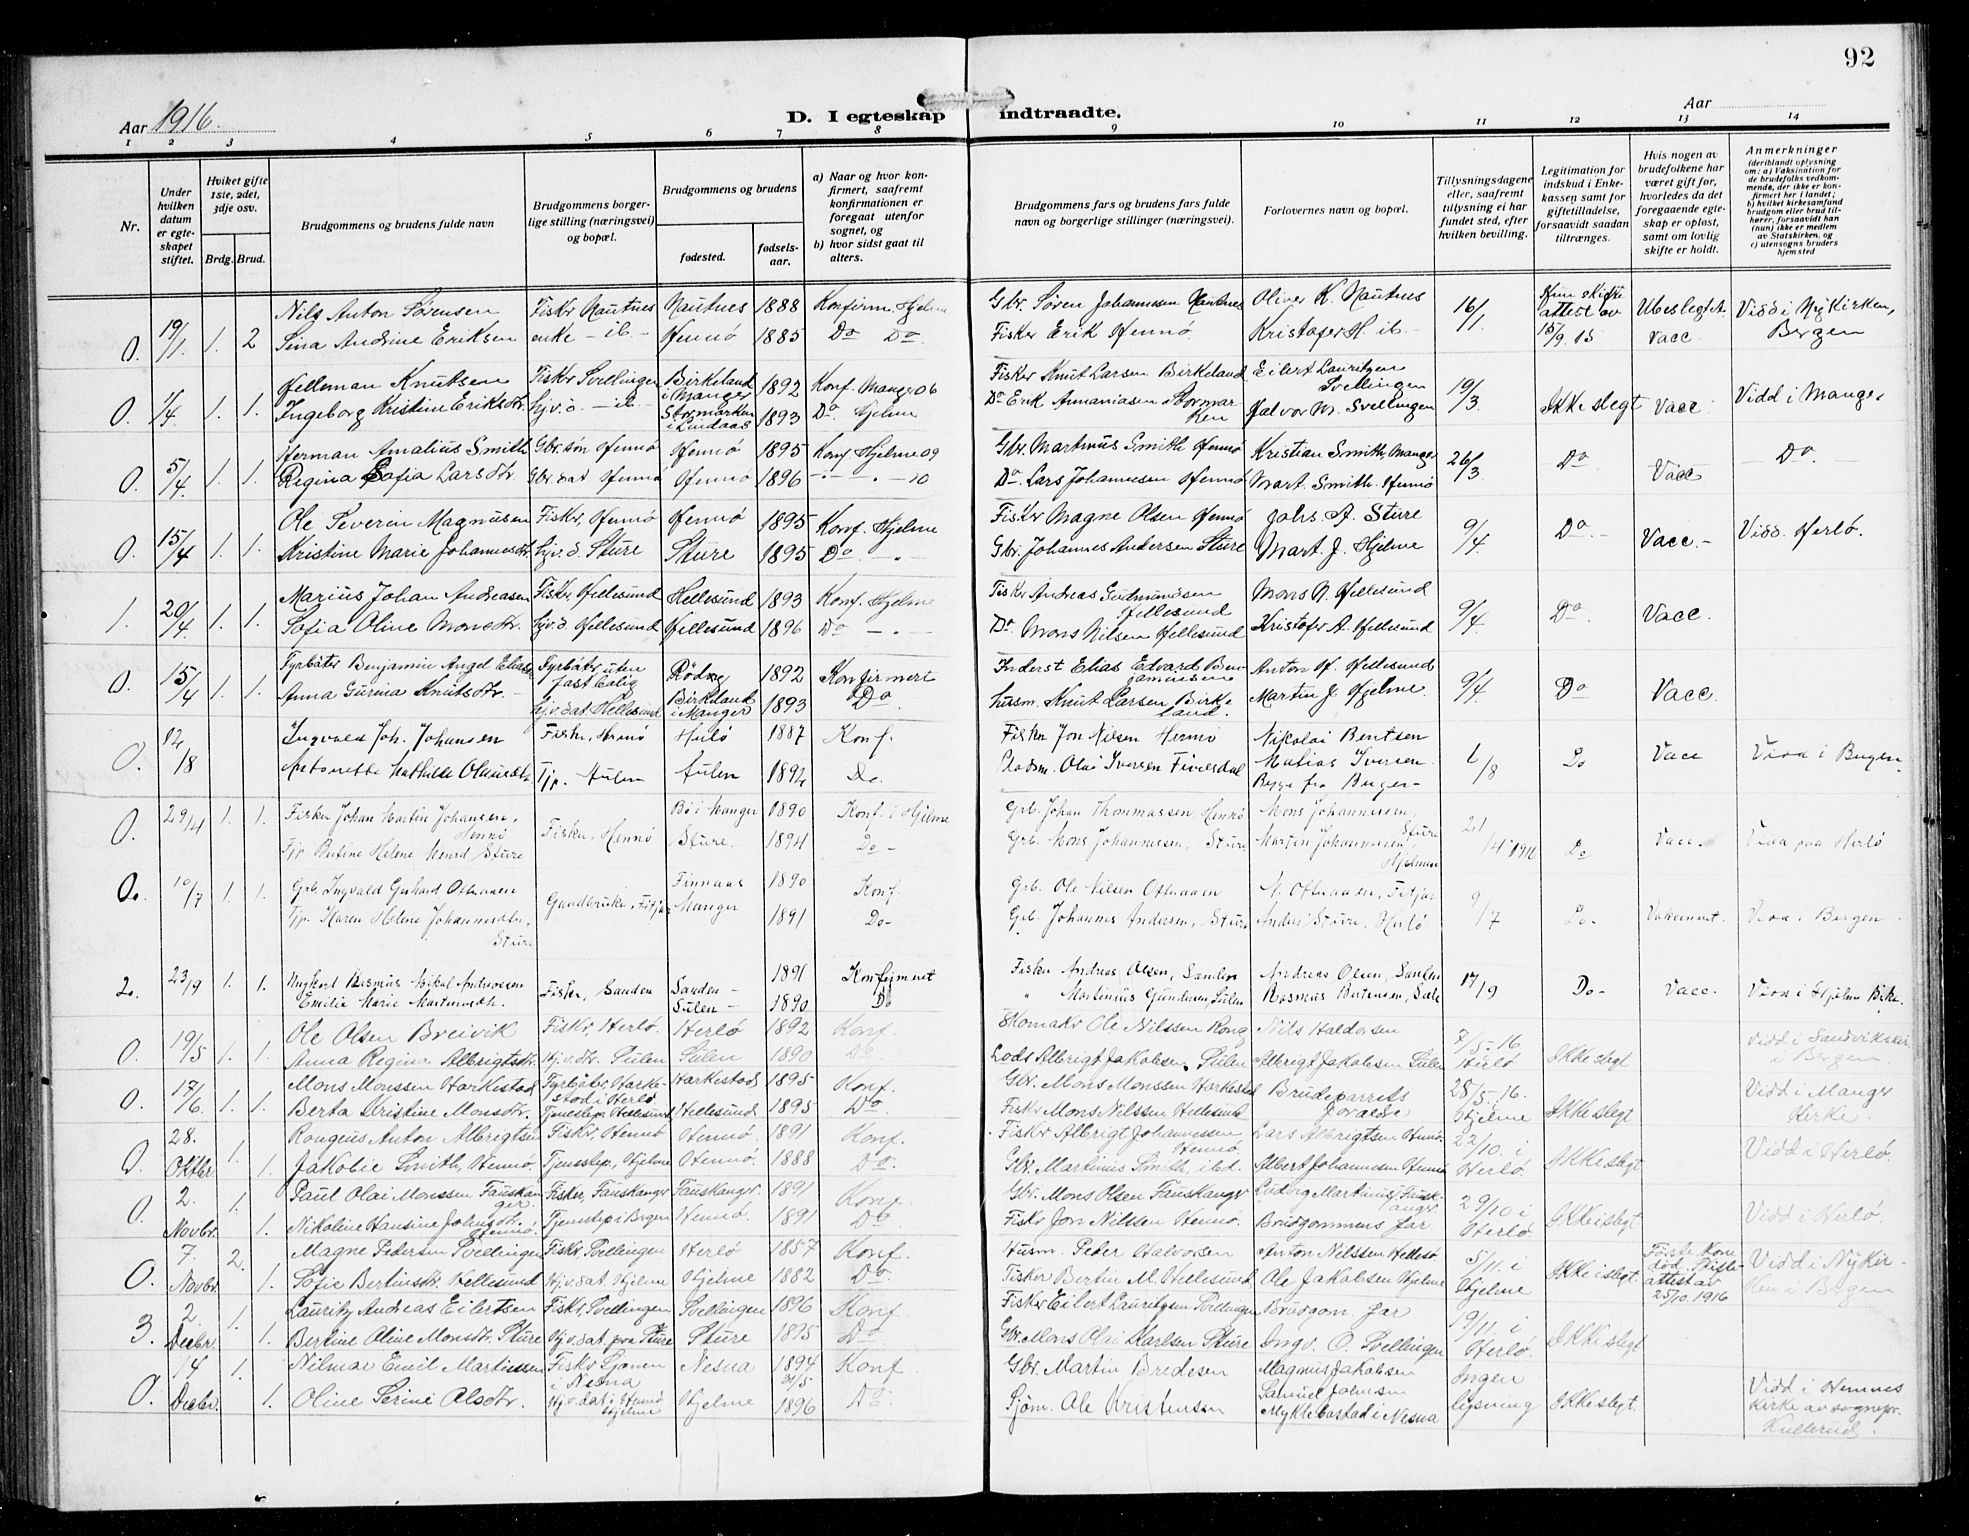 92
Aar 1916.
D. I egteskap indtraadte.
Aar
1 2 3 4 5 6 7 8 9 10 11 12 13 14
Nr.
Under hvilken datum er egteskapet stiftet.
Hviket gifte 1ste, 2det, 3dje osv.
Brdg. Brud.
Brudgommens og brudens fulde navn
Brudgommens borgerlige stilling (næringsvei) og bopæl.
Brudgommens og brudens
fødested.
fødselsaar.
a) Naar og hvor konfirmert, saafremt konfirmationen er foregaat utenfor sognet, og
b) hvor sidst gaat til alters.
Brudgommens fars og brudens fars fulde navn og borgerlige stillinger (næringsvei).
Forlovernes navn og bopæl.
Tillysningsdagene eller, saafremt tillysning ei har fundet sted, efter hvilken bevilling.
Legitimation for indskud i Enkekassen samt for giftetilladelse, forsaavidt saadan tiltrænges.
Hvis nogen av brudefolkene har været gift før, hvorledes da det foregaaende egteskap er opløst, samt om lovlig skifte er holdt.
Anmerkninger
(deriblandt oplysning om: a) Vaksination for de brudefolks vedkommende, der ikke er konfirmert her i landet; b) hvilket kirkesamfund brudgom eller brud tilhører, forsaavidt han (hun) ikke er medlem av Statskirken, og c) utensogns bruders hjemsted
0. 19/1 1. 2 Nils Anton Sørensen Fiskr Nautnes Nautnes 1888 Konfirm. Hjelme Gbr. Søren Johannessen Nautnes Oliver K. Nautnes 16/1. attest av 15/9 15 Ubeslegtet. Vidd i Nykirken,
Sina Andrine Eriksen enke - ib - Hennø 1885 Do Do Fisker Erik Hennø Kristofer H. ib. - Vacc. Bergen
0. 1/4 1. 1. Helleman Knutsen Fiskr Svellingen Birkeland i Manger 1892 Konf. Manger 06 Fisker Knut Larsen Birkeland Eilert Lauritzen Svellingen 19/3 Ikke slegt Vacc. Vidd i Manger
Ingeborg Kristine Eriksdtr. Hjv.d. - ib. - Stormarken i Lindaas 1893 Do Hjelme Do Erik Annaniasen Stormarken Halvor M. Svellingen
0. 5/4 1. 1. Herman Amalius Smith Gbr. søn Hennø Hennø 1895 Konf. Hjelme 09 Gbr. Martinus Smith Hennø Kristian Smith, Manger 26/3 Do. Vacc Do.
Regina Sofia Larsdtr. Gbr. dat Hennø Hennø 1896 - - 10 Do. Lars Johannesen Hennø Mart. Smith. Hennø
0. 15/4 1. 1. Ole Severin Magnusen Fiskr, Hennø Hennø 1895 Konf. Hjelme Fisker Magne Olsen Hennø Johs. A. Sture 9/4. Do. - Vacc. - Vidd. Herlø.
Kristine Marie Johannesdtr. Hjv.d. Sture Sture 1895 Do. - " - Gbr. Johannes Andersen Sture Mart. J. Hjelme
1. 20/4 1. 1. Marius Johan Andreasen Fiskr, Hellesund Hellesund 1893 Konf. Hjelme Fiskr Andreas Gudmundsen Hellesund Mons N. Hellesund 9/4. Do Vacc.
Sofia Oline Monsdtr. Hjv.d. Hellesund Hellesund 1896 Do - " - Do. Mons Nilsen Hellesund Kristofer A. Hellesund
0. 15/4 1. 1. Fyrbøter Benjamin Angel Eliasen Fyrbøter uten fast bolig Rødøy 1892 Konfirmert Inderst Elias Edvard Benjaminsen Anton H. Hellesund 9/4. Do Vacc.
Anna Gurina Knutsdtr. - Hjv.dat Hellesund Birkeland i Manger 1893 Do. Husm. Knut Larsen Birkeland. Martin J. Hjelme.
0. 12/8 Ingvald Joh. Johansen Fisker, Hennø Herlø 1887 Konf. Fisker Jon Nilsen Hennø Nikolai Bentsen 6/8 Do Vacc Viad i Bergen
Antonette Mathilde Olausdtr. Tjp. Sulen Sulen 1894 Do. Pladsm. Olai Iversen Matias Iversen
0. 29/4 1. 1. Fisker Johan Martin Johansen, Hennø Fisker, Hennø Bø i Manger 1890 Konf. i Hjelme Grb. Johan Thommassen, Hennø Mons Johannessen, Sture 21/4 1916 Do Vacc. Viaa paa Herlø
Tjp Helene Monsd Sture Sture. 1894 Do - Grb. Mons Johannessen, Sture Martin Johannessen Hjelmen
0. 10/7 1. 1. Grb. Ingvald Gerhard Gaardbruker, Fitjar Finnaas 1890 Konf. Grb. Ole Nilsen Fitjar 9/7 Do - Viaa i Bergen
Tjp. Karen Helene Johannesdtr. Sture Manger 1891 Do - Grb. Johannes Andersen, Sture Anders Sture, Herlø
2. 23/9 1. 1. Ungkarl Rasmus Mikal Andreassen Fisker, Sanden Sanden - 1891 Konfirmeret Fisker Andreas Olsen, Sanden Andreas Olsen, Sanden 17/9 Do - Vacc. Viaa i Hjelme Kirke.
Emilie Marie Martinusdtr. Sulen - 1890 Do " Martinius Gundersen, Sulen Rasmus
0. 19/5 1. 1. Ole Olsen Breivik Fiskr, Herlø. Herlø 1892 Konf. Skomakr Ole Nilssen Rong Nils Haldorsen 7/5 - 16 Herlø Ikke slegt Vidd i Sandvikskir. i Bergen.
Anna Regina Albrigtsdtr. Hjv.dtr. Sulen Sulen 1890 Do Lods Albrigt Jakobsen Sulen Albrigt Jakobsen Sulen
0. 17/6. 1. 1. Mons Monssen Harkestad Fyrbøter, Harkestad i Herlø. Harkestad 1895 Konf. Gbr. Mons Monssen Harkestad Brudeparrets forældre 28/5. 16. Hjelme Ikke slegt Vidd i Manger Kirke.
Berta Kristine Monsdtr. Tjenestep. Hellesund Hellesund 1895 Do Fiskr Mons Nilssen Hellesund
0. 28. Oktbr. 1. 1. Rongius Anton Albrigtsen Fiskr, Hennø Hennø 1891 Konf. Fiskr Albrigt Johannessen Hennø. Lars Albrigtsen Hennø. 22/10. i Herlø. Ikke slegt Vidd i Herlø.
Jakobie Smith, Hennø. Tjenestep, Hjelme Hennø. 1888 Do. Gbr. Martinus Smith, ibd. Albert Johannesen Hennø
0. 2. Novbr. 1. 1. Paul Olai Monssen Fauskanger. Fisker, Fauskanger Fauskangr. 1891 Konf. Gbr. Mons Olsen Fauskangr Ludvig Martinius Fauskangr. 29/10 i Herlø Ikke slegt Vidd i Herlø.
Nikoline Hansine Johnsdtr. Hennø. Tjenestep i Bergen Hennø. 1891 Do Fiskr Jon Nilssen Hennø. Brudgommens far
0. 7. Novbr. 2. 1. Magne Petersen Svellingen Fiskr Svellingen Herlø 1857 Konf. Husm. Peter Halvorsen Anton Nilssen Hellesø 5/11. i Hjelme Ikke slegt. Første Kone død. Skifteattest av 25/10. 1916 Vidd i Nykirken i Bergen
Sofie Bertinsdtr. Hellesund Hjv.dat. Hjelme Hjelme 1882 Do. Fisker Bertin M. Hellesund Ole Jakobsen Hjelme
3. 2. Decbr. 1. Lauritz Andreas Eilertsen Fiskr. Svellingen Svellingen 1896 Konf. Fiskr Eilert Lauritzsen Svellingen Brudgom. far 19/11. i Herlø. Ikke slegt
Bertine Oline Monsdtr. Sture Hjv.dat. paa Sture Sture 1895 Do. Gbr. Mons Olai Karlsen Sture Ingv. O. Svellingen
0. 14 Decbr. 1. 1. Hilmar Emil Martinssen Fiskr i Nesna Nesna 1894 Konf Gbr. Martin Bredesen Magnus Jakobsen Ingen lysning Ikke slegt. Vidd i Hemnes Kirke av sognepr. Kullerud.
Oline Serine Olsdtr. Hjv.dat. i Hennø Hjelme Hjelme 31/5 1896 Do. Sjøm. Ole Kristensen Samuel Johnsen Myklebostad i Nesna